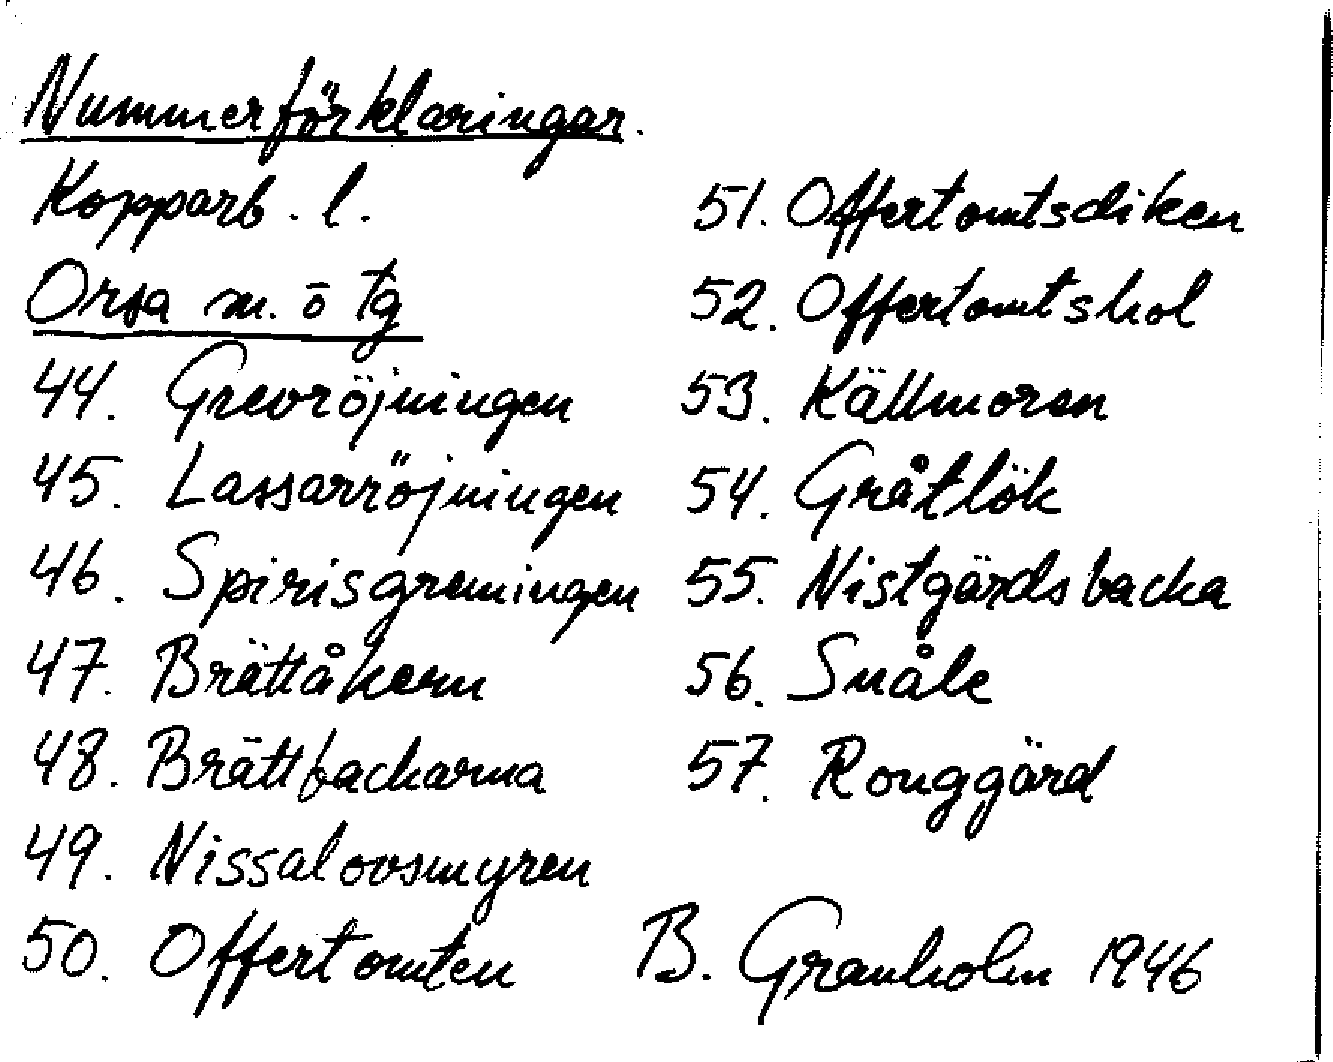 Nummerförklaringar.
Kopparb. l.
Orsa sn. ö tg
44. Grevröjningen
45. Lassarröjningen
46. Spirisgreningen
47. Brättåkern
48. Brättbackarna
49. Nissalovsmyren
50. Offertomten
51. Offertomtsdiken
52. Offertomtshol
53. Källmoren
54. Gråtlök
55. Nistgärdsbacka
56. Snåle
57. Ronggärd
B. Granholm 1946